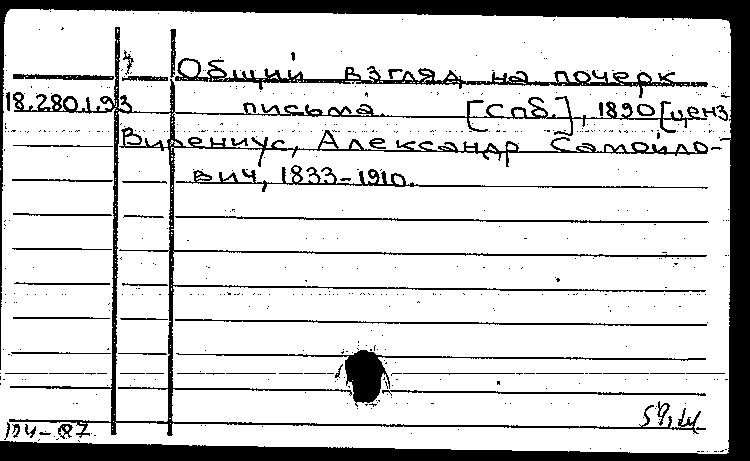 Общий взгляд на почерк
18.280.1.93 письма. [Спб.], 1890 [ценз
Вирениус, Александр Самойло-
вич, 1833-1910.
124-87